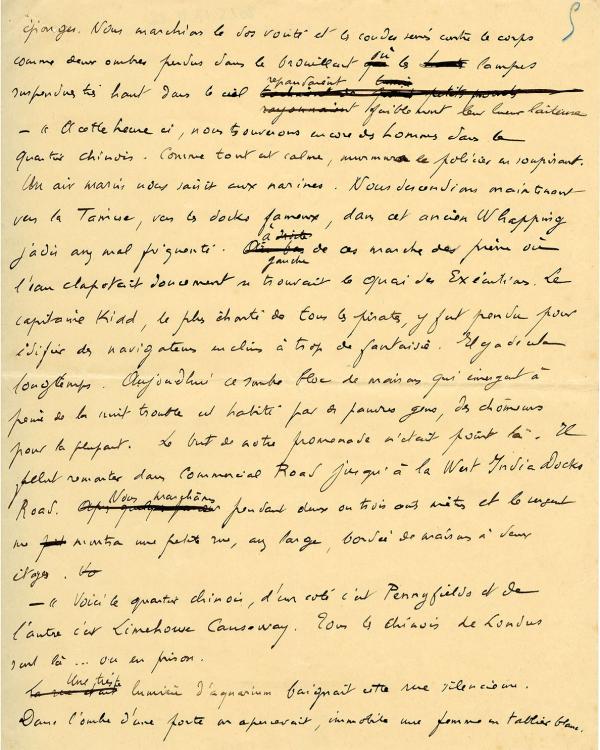 5
éponges. Nous marchions le dos voûté et les coudes serrés contre le corps
comme deux ombres perdus dans le brouillard où les lampes
suspendues très haut dans le ciel répandaient
rayonnaient faiblement leur lueur laiteuse
— "A cette heure ci, nous trouverons encore des hommes dans le
quartier chinois. Comme tout est calme, murmura le policier en soupirant.
Un air marin nous saisit aux narines. Nous descendions maintenant
vers la Tamise, vers les docks fameux, dans cet ancien Whapping
à droite
jadis assez mal fréquenté. Là bas de ces marche des pierre où
gauche
l'eau clapotait doucement se trouvait le Quai des Exécutions. Le
capitaine Kidd, le plus chanté de tous les pirates, y fut pendu pour
édifier des navigateurs enclins à trop de fantaisie. Il y a de cela
longtemps. Aujourd'hui ce sombre bloc de maisons qui émergent à
peine de la nuit trouble est habité par des pauvres gens, des chômeurs
pour la plupart. Le but de notre promenade n'était point là. Il
fallut remonter dans Commercial Road jusqu'à la West India Docks
Nous marchâmes
Road. pendant deux ou trois cents mètres et le sergent
me montra une petite rue, assez large, bordée de maisons à deux
étages.
— "Voici le quartier chinois, d'un coté c'est Pennyfields et de
l'autre c'est Limehouse Causeway. Tous les chinois de Londres
sont là ... ou en prison.
Une triste
La rue était lumière d'aquarium baignait cette rue silencieuse.
Dans l'ombre d'une porte on apercevait, immobile une femme en tablier blanc.